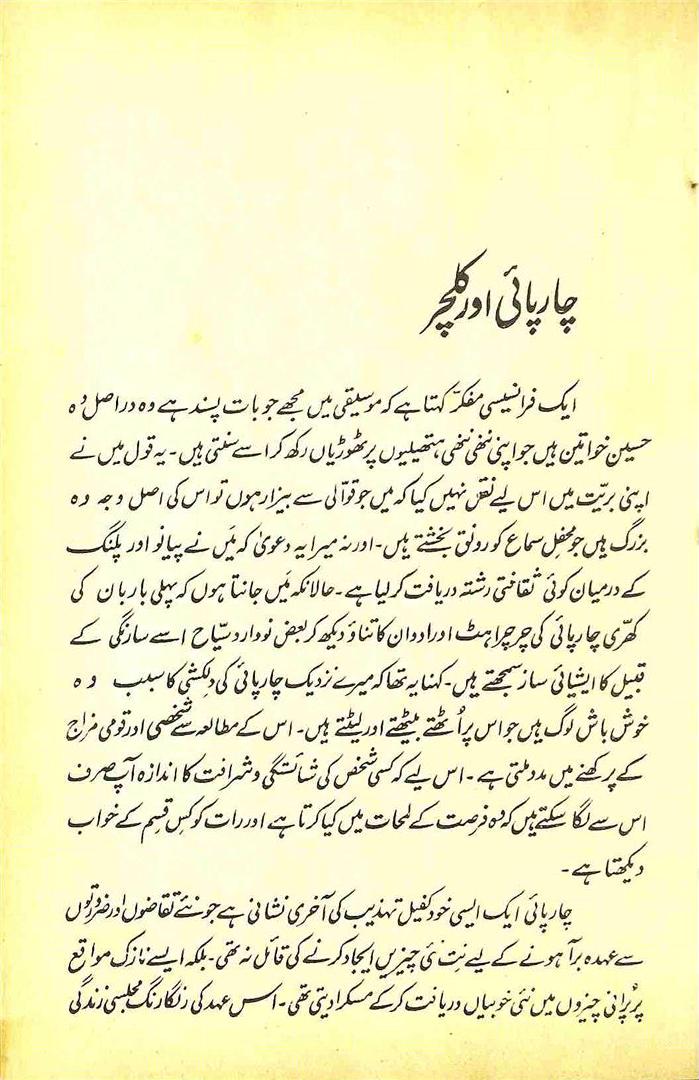 چارپائی اور کلچر
ایک فرانسیسی مفکرّ کہتا ہے کہ موسیقی میں مجھے جو بات پسند ہے وہ دراصل وہ
حسین خواتین ہیں جو اپنی ننھی ننھی ہتھیلیوں پر ٹھوڑیاں رکھ کر اسے سنتی ہیں۔ یہ قول میں نے
اپنی بریّت میں اس لیے نقل نہیں کیا کہ میں جو قوّالی سے بیزار ہوں تو اس کی اصل وجہ وہ
بزرگ ہیں جو محفلِ سماع کو رونق بخشتے ہیں۔ اور نہ میرا یہ دعویٰ کہ میَں نے پیانو اور پلنگ
کے درمیان کوئی ثقافتی رشتہ دریافت کرلیا ہے۔ حالانکہ میَں جانتا ہوں کہ پہلی بار بان کی
کھرّی چارپائی کی چرچراہٹ اور ادوان کا تناؤ دیکھ کر بعض نووارد سیّاح اسے سارنگی کے
قبیل کا ایشیائی ساز سمجھتے ہیں۔ کہنا یہ تھا کہ میرے نزدیک چارپائی کی دلکشی کا سبب وہ
خوش باش لوگ ہیں جو اس پر اُٹھتے بیٹھتے اور لیٹتے ہیں۔ اس کے مطالعہ سے شخصی اور قومی مزاج
کے پرکھنے میں مدد ملتی ہے۔ اس لیے کہ کسی شخص کی شائستگی و شرافت کا اندازہ آپ صرف
اس سے لگا سکتے ہیں کہ وہ فرصت کے لمحات میں کیا کرتا ہے اور رات کو کس قسم کے خواب
دیکھتا ہے۔
چارپائی ایک ایسی خود کفیل تہذیب کی آخری نشانی ہے جو نئے تقاضوں اور ضرورتوں
سے عہدہ برآ ہونے کے لیے نِت نئی چیزیں ایجاد کرنے کی قائل نہ تھی۔ بلکہ ایسے نازک مواقع
پر پُرانی چیزوں میں نئی خوبیاں دریافت کرکے مسکرا دیتی تھی۔ اس عہد کی رنگارنگ مجلسی زندگی